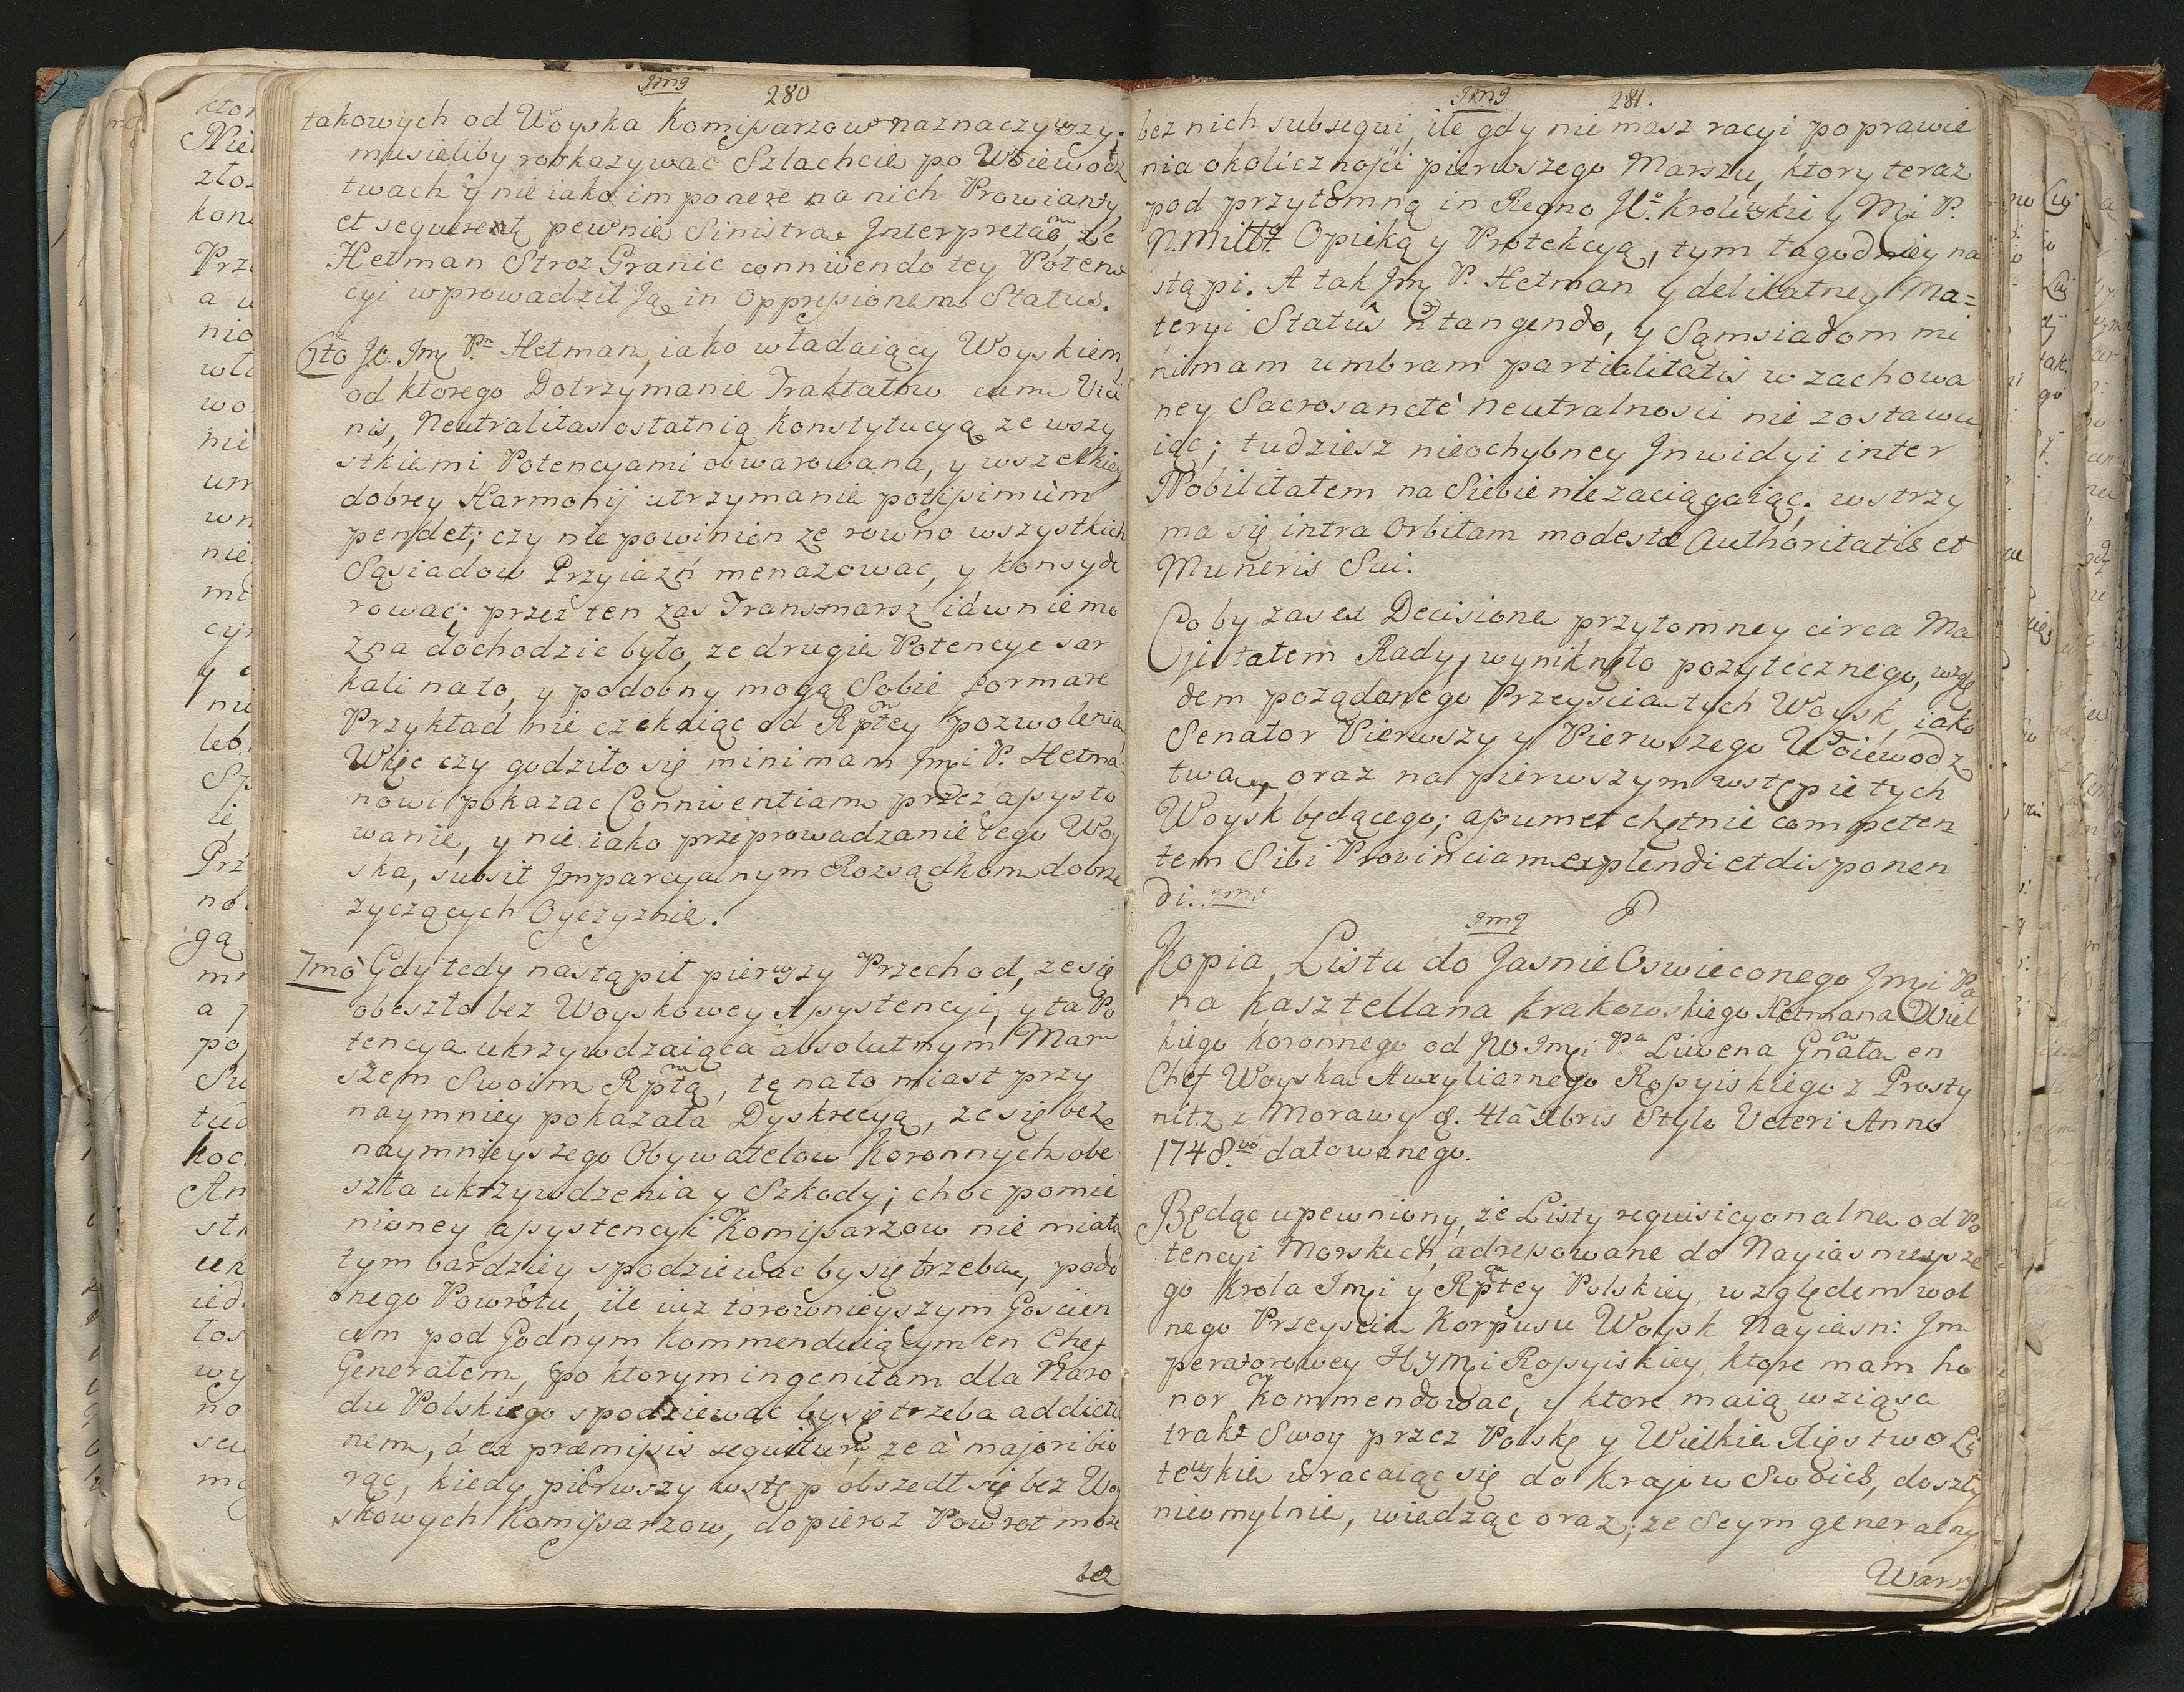 280
takowych od Woyska Komissarzow naznaczywszy.
musieliby roskazywac Szlachcie po Woiewodz
twach y nie iako imponere na nich Prowianty
et sequerentų pewnie Sinistrae Interpretaõ, że
Hetman Stroz Granic conniwendo tey Poten
cyi wprowadził Ją in Oppressionem Status.
6to Jo. Jmć Pn Hetman, iako władaiący Woyskiem
od ktorego Dotrzymanie Traktatow cum Vici
nis, Neutralitas ostatnią Konstytucyą ze wszy
stkiemi Potencyami obwarowana, y wszelkiey
dobrey Harmonij utrzymanie potissimùm
pendet; czy nie powinien ze rowno wszystkich
Sąsiadow Przyiazń menazowac, y konsyde
rowac; przez ten zas Transmarsz iáwnie mo
zna dochodzic było, ze drugie Potencye sar
kali na to, y podobny mogą Sobie formare
Przykład nie czekaiąc od Rpłtey pozwolenia
Więc czy godziło się minimam Jmći P. Hetma-
nowi pokazac Conniventiam przez assysto
wanie, y nie iako przeprowadzanie tego Woy
ska, subsit Jmparcyalnym Rozsądkom dobrze
zyczących Oyczyznie.
7mò Gdy tedy nastąpił pierwszy Przechod, ze się
obeszło bez Woyskowey Assystencyi, y ta Po
tencya ukrzywdzaiąca absolutnym Mar
szem Swoim Rpłtą, tę na to miast przy
naymniey pokazała Dyskrecyą, ze się bez
naymnieyszego Obywatelow Koronnych obe
szła ukrzywdzenia y Szkody; choc pomie
nioney assystencyi Komissarzow nie miała
tym bardziey spodziewac by się trzeba, podo
bnego Powrotu, ile iuz torownieyszym Goscien
cem pod Godnym Kommenduiącym en Chef
Generałem, po ktorym ingenitam dla Naro
du Polskiego spodziewac by się trzeba addictio
nem, á ex præmissis sequitur, ze à majori bio
rąc, kiedy pierwszy wstęp obszedł się bez Woy
skowych Komissarzow, dopieroz Powrot może
bez
281.
bez nich subsequi, ile gdy nie masz racyi poprawie
nia okolicznosci pierwszego Marszu, ktory teraz
pod przytomną in Regno Jo. Krolewskiey Mći P.
N. Miłł. Opieką y Protekcyą, tym łagodniey na
stąpi. A tak Jmć P. Hetman y delikatney Ma=
teryi Statûs ñ tangendo, y Sąmsiadom mi
nimam umbram partialitatis w zachowa
ney Sacrosanctè Neutralnosci nie zostawu
iąc; tudziesz nieochybney Jnwidyi inter
Nobilitatem na Siebie nie zaciągaiąc; wstrzy
ma się intra Orbitam modestæ Authoritatis et
Muneris Sui.
Coby zas ex Decisione przytomney circa Ma
jestatem Rady, wyniknęło pozytecznego, wzglę
dem poządanego Przeyscia tych Woysk, iako
Senator Pierwszy y Pierwszego Woiewodz
twa, oraz na pierwszym wstępie tych
Woysk będącego; assumet chętnie competen
tem Sibi Provinciam explendi et disponen
di.
Kopia Listu do Jasnie Oswieconego Jmći Pa
na Kasztellana Krakowskiego Hetmana Wiel
kiego Koronnego od JW Jmći Pa Liwena Gñała en
Chef Woyska Auxyliarnego Rossyiskiego z Prosty
nitz z Morawy d. 4ta Xbris Stylo Veteri Anno
1748.vo datowanego.
Będąc upewniony, że Listy requisicyonalne od Po
tencyi Morskich, adressowane do Nayiasnieysze
go Krola Jmći y Rpłtey Polskiey, względem wol
nego Przeyscia Korpusu Woysk Nayiasn: Jm
peratorowey Hymći Rossyiskiey, ktore mam ho
nor Kommendowac, y ktore maią wziąsc
trakt Swoy przez Polskę y Wielkie Xięstwo Li
tewskie wracaiąc się do Krajow Swoich, doszły
nieomylnie, wiedząc oraz, ze Seym generalny
Warsz